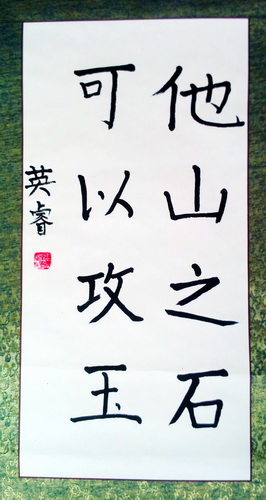 他山之石
可以攻玉
英睿